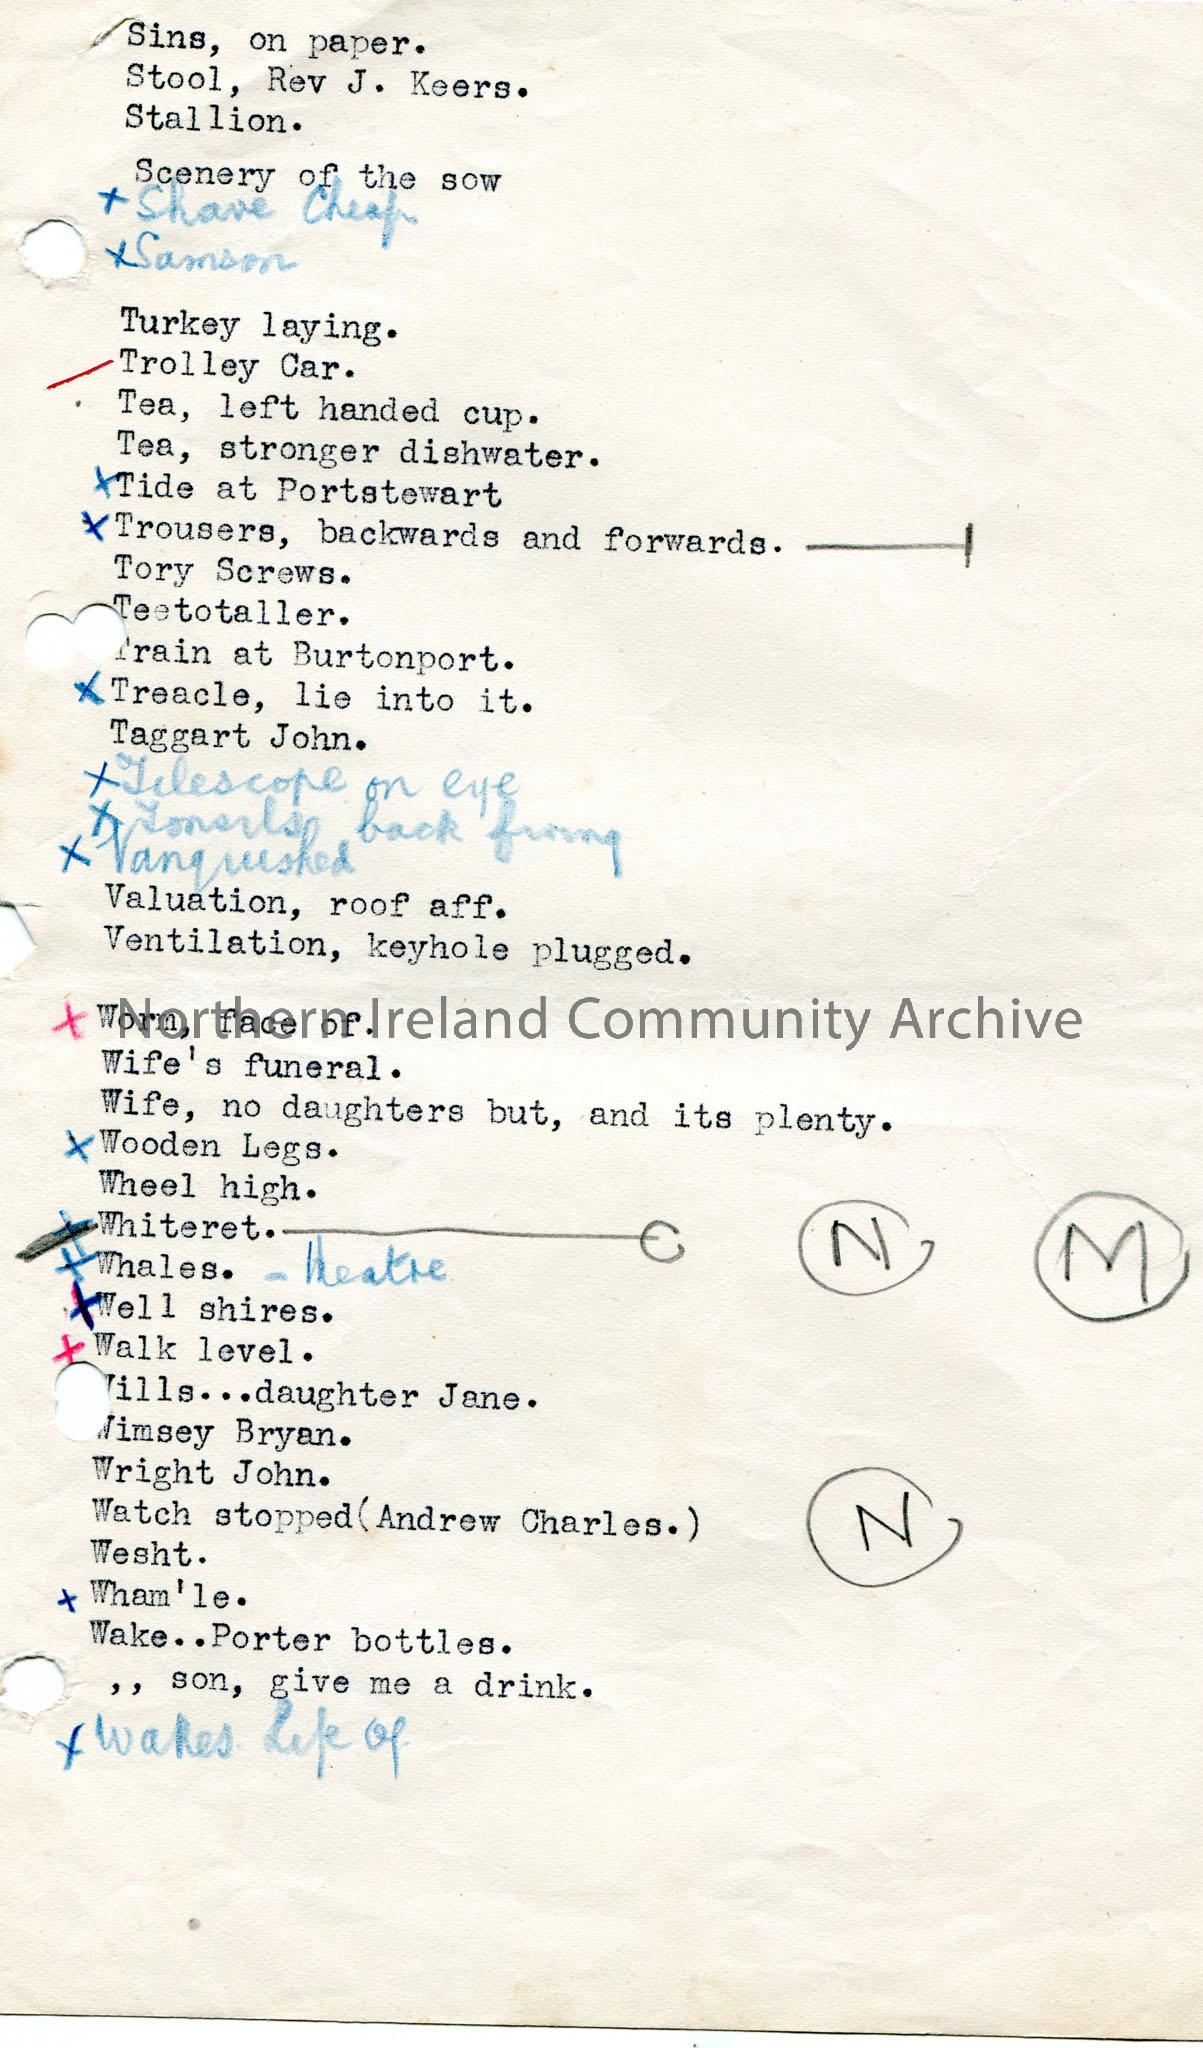 Sins, on paper.
Stool, Rev J. Keers.
Stallion.
Scenery of the sow
+ Shave Cheap
x Samson
Turkey laying.
Trolley Car.
Tea, left handed cup.
Tea, stronger dishwater.
x Tide at Portstewart
x Trousers, backwards and forwards.
Tory Screws.
Teetotaller.
Train at Burtonport.
x Treacle, lie into it.
Taggart John.
x Telescope on eye
x back firing
x Vanquished
Valuation, roof aff.
Ventilation, keyhole plugged.
Northern Ireland Community Archive
x Worm, face of.
Wife's funeral.
Wife, no daughters but, and its plenty.
x Wooden Legs.
Wheel high.
x Whiteret. C N M
x Whales. - theatre
x Well shires.
x Walk level.
Wills...daughter Jane.
Wimsey Bryan.
Wright John.
Watch stopped(Andrew Charles.) N
Wesht.
x Wham'le.
Wake..Porter bottles.
,, son, give me a drink.
x Wakes Life Of